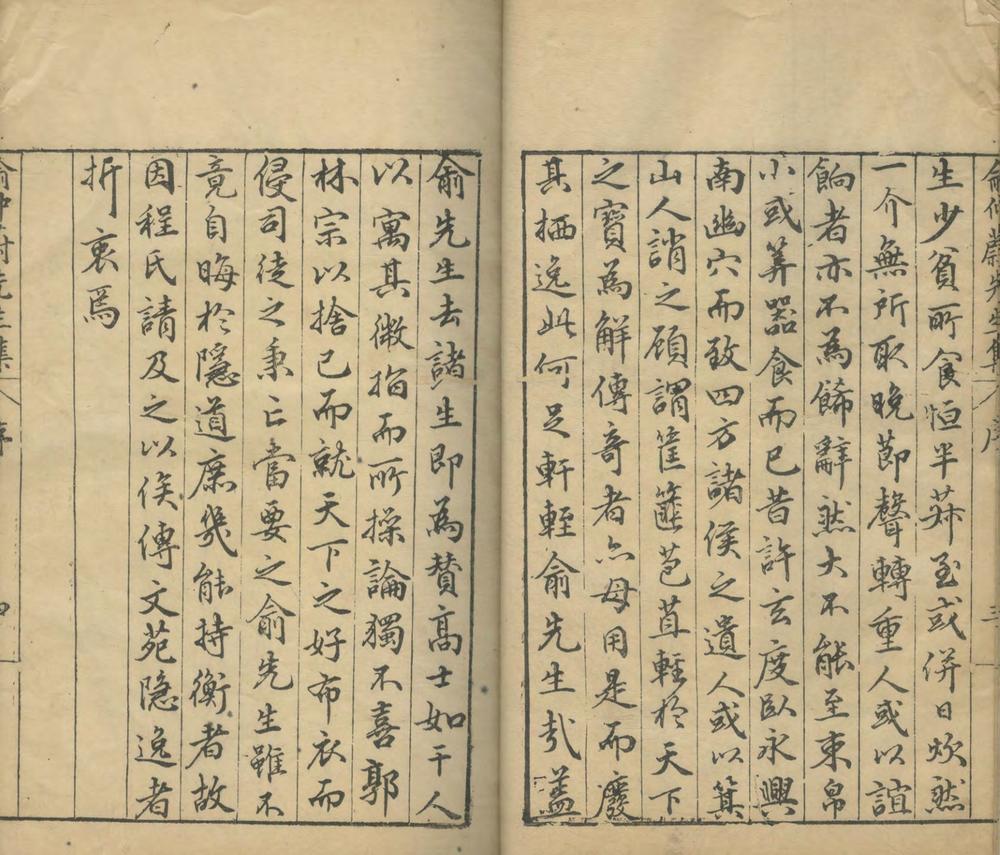 俞仲蔚先生集 序 三
生少貧所食恒半菽至或併日炊然
一介無所取晚節聲轉重人或以誼
餉者亦不為餙辭然大不能至束帛
小或筭器食而已昔許玄度臥永興
南幽穴而致四方諸侯之遺人或以箕
山人誚之顧謂筐篚苞苴輕於天下
之寶為解傳奇者亦毋用是而廢
其栖逸此何足軒輊俞先生哉蓋
俞先生去諸生即為贊高士如干人
以寓其微指而所操論獨不喜郭
林宗以捨己而就天下之好布衣而
侵司徒之秉亡當要之俞先生雖不
竟自晦於隱道庶幾能持衡者故
因程氏請及之以俟傳文苑隐逸者
折衷焉
俞仲蔚先生集 序 四